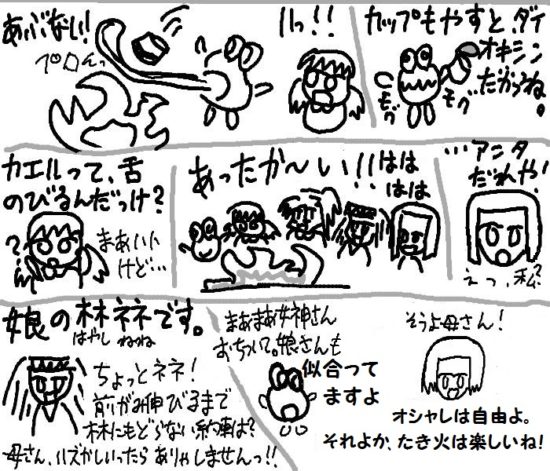 あぶない!
ペロんっ
ハっ!!
カップもやすと、ダイ
オキシン
だからね。
モグ
モグ
カエルって、舌
のびるんだっけ?
?
まあいい
けど…
あったか〜い!!
はは
はは
…アンタ
だれや!
えっ、私?
娘の林ネネです。
はやし ねね
ちょっとネネ!
前がみ伸びるまで
林にもどらない約束は?
母さん、ハズかしいったらありゃしませんっ!!
まあまあ女神さん
おちついて。娘さんも
似合って
ますよ
そうよ母さん!
オシャレは自由よ。
それよか、たき火は楽しいね!